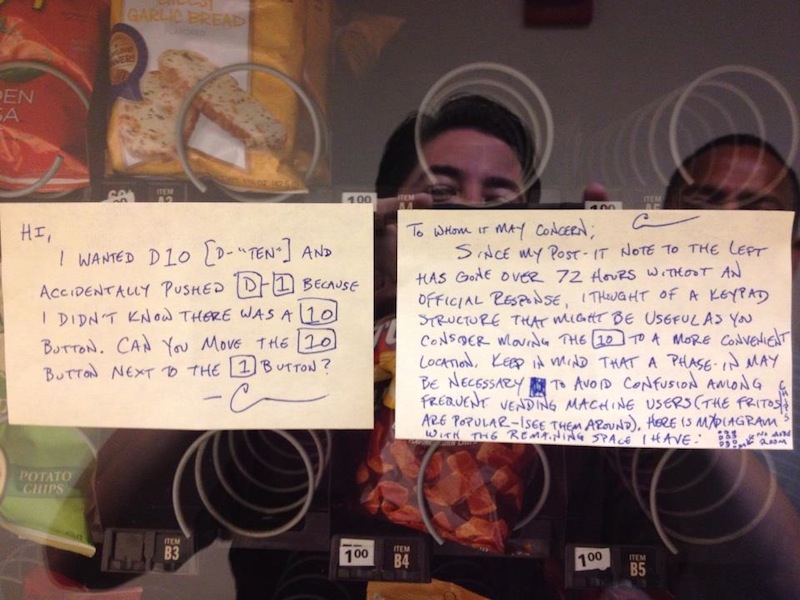 GARLIC BREAD
EN
SA
ITEM
A3
1.00
ITEM
A4
1.00
HI,
I WANTED D10 [D-"TEN"] AND
ACCIDENTALLY PUSHED D-1 BECAUSE
I DIDN'T KNOW THERE WAS A 10
BUTTON. CAN YOU MOVE THE 10
BUTTON NEXT TO THE 1 BUTTON?
TO WHOM IT MAY CONCERN;
SINCE MY POST-IT NOTE TO THE LEFT
HAS GONE OVER 72 HOURS WITHOUT AN
OFFICIAL RESPONSE, I THOUGHT OF A KEYPAD
STRUCTURE THAT MIGHT BE USEFUL AS YOU
CONSIDER MOVING THE 10 TO A MORE CONVENIENT
LOCATION. KEEP IN MIND THAT A PHASE-IN MAY
BE NECESSARY TO AVOID CONFUSION AMONG
FREQUENT VENDING MACHINE USERS (THE FRITOS
ARE POPULAR-I SEE THEM AROUND). HERE IS MY DIAGRAM
WITH THE REMAINING SPACE I HAVE:
POTATO
CHIPS
ITEM
B3
1.00
ITEM
B4
1.00
ITEM
B5